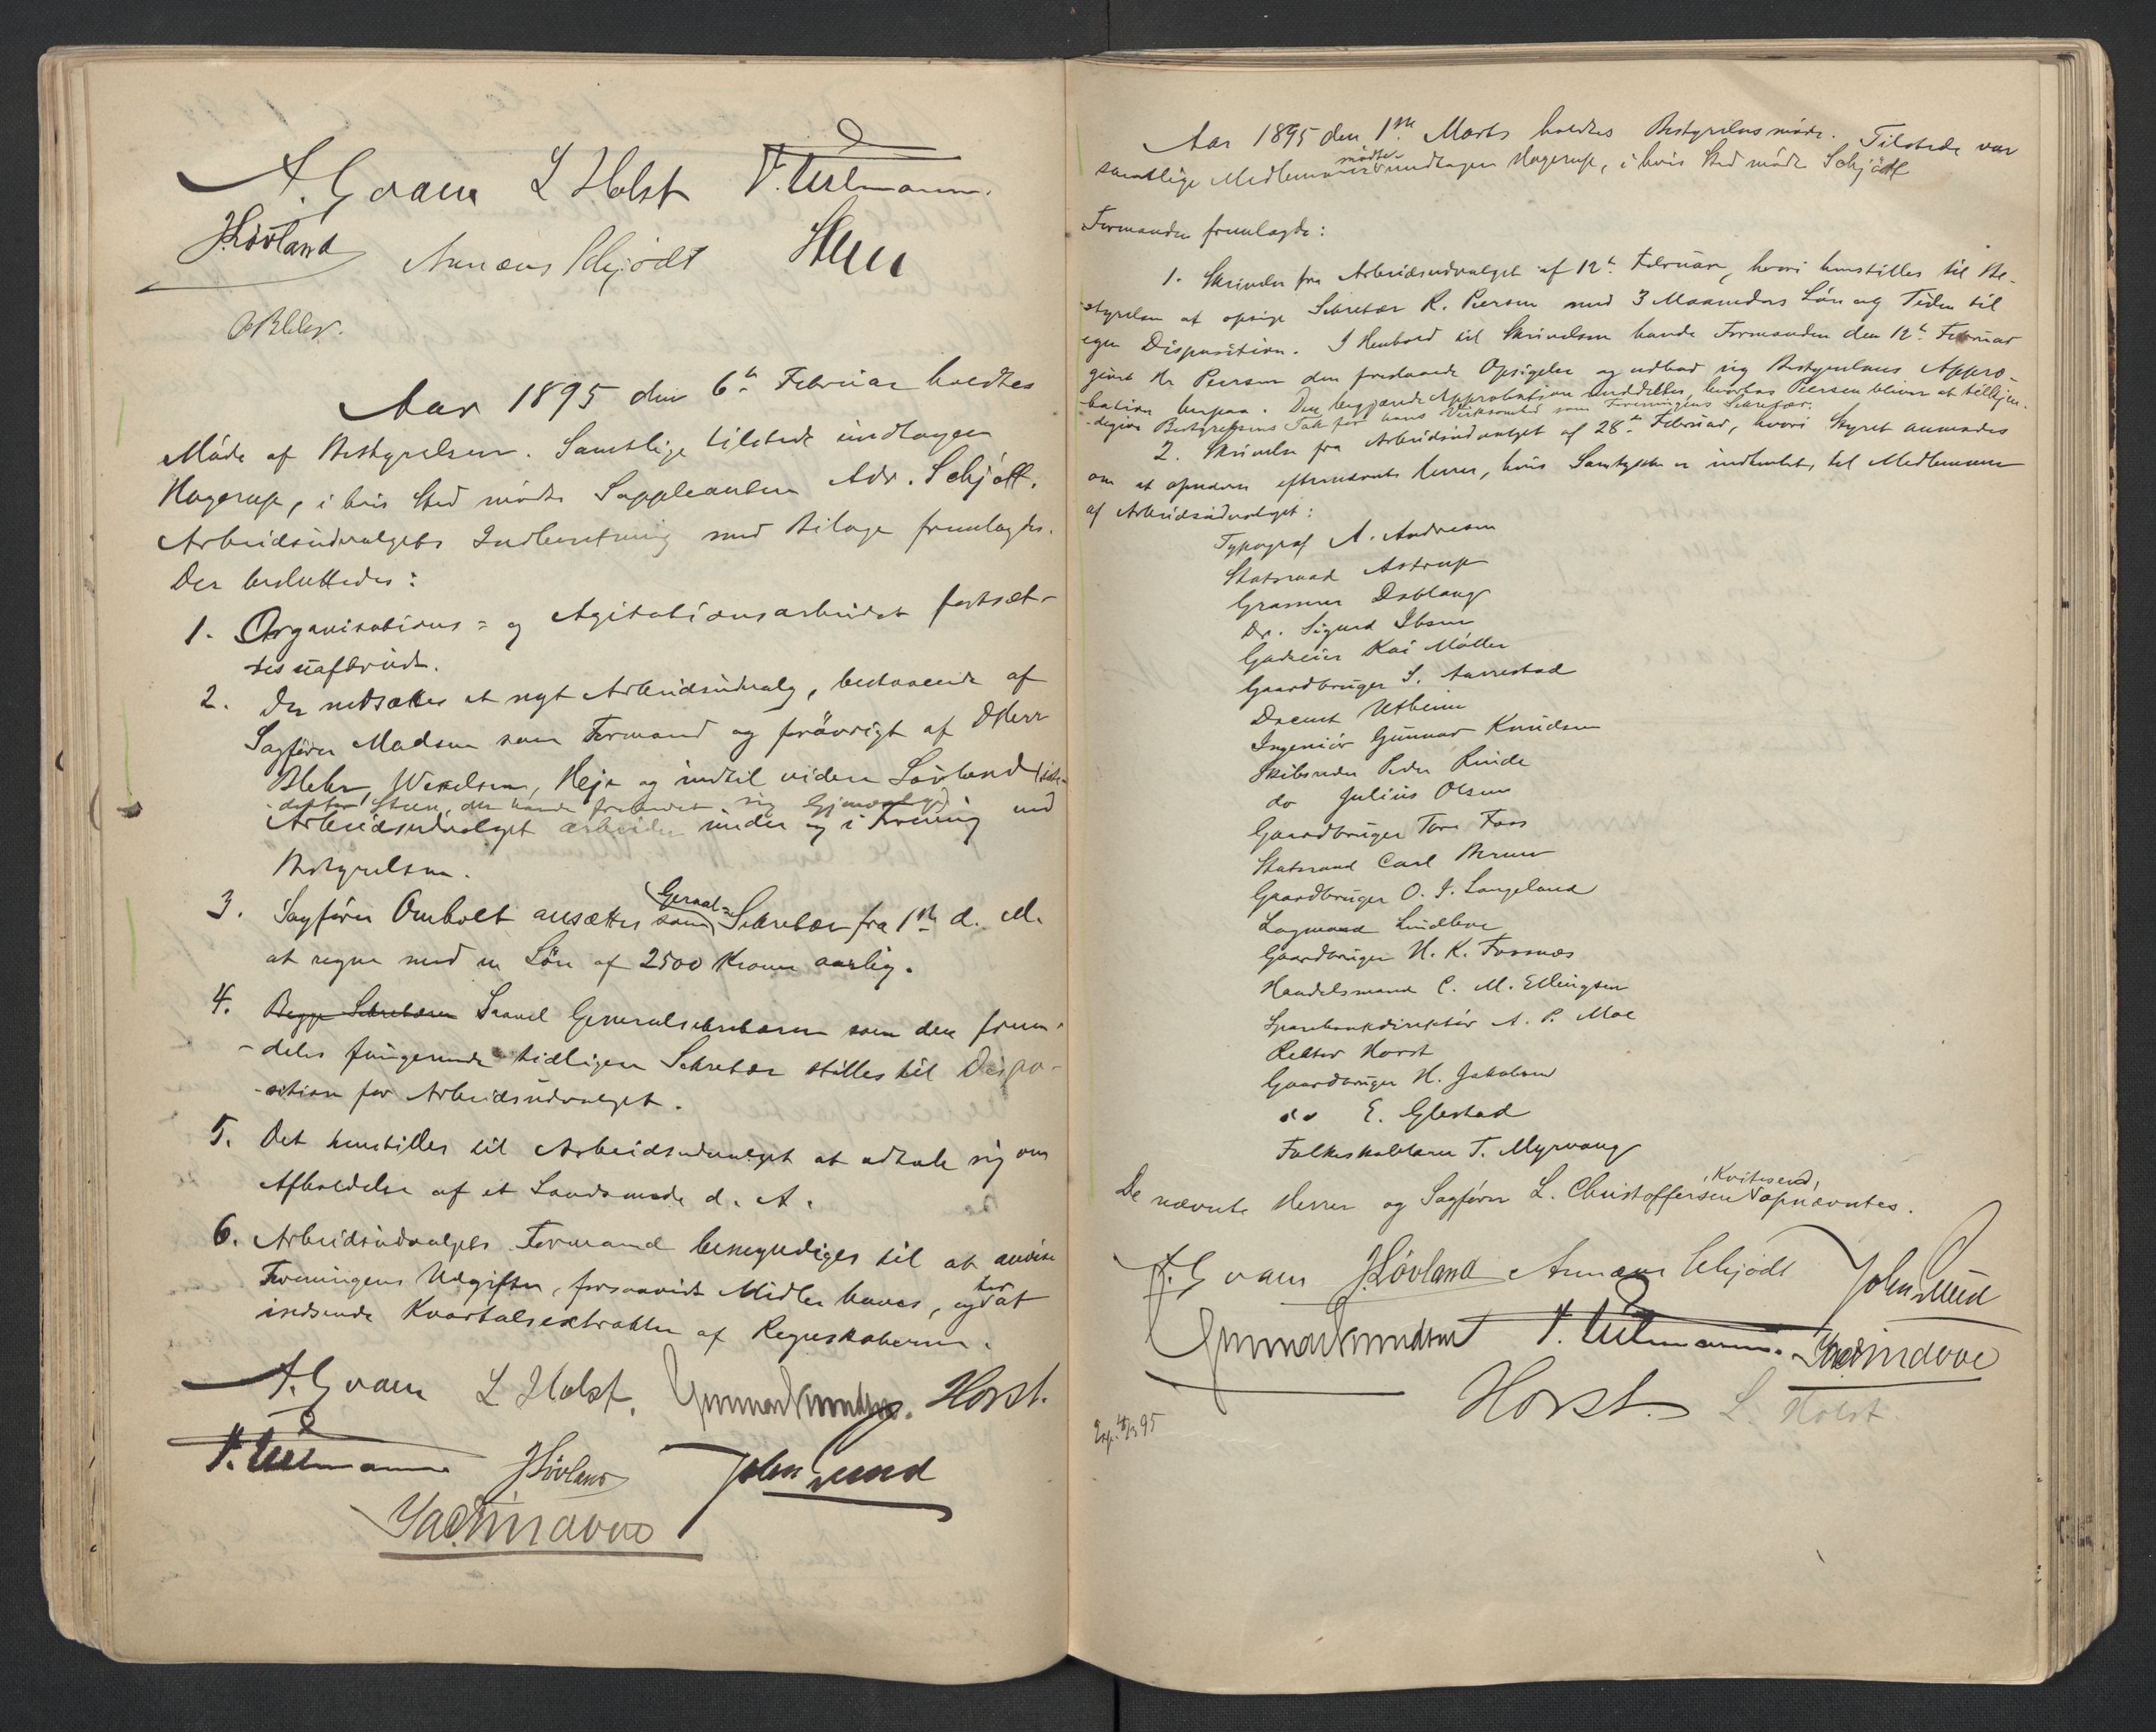 A. Qvam L Holst V. Ullmann.
J. Løvland Annæus Schjödt Steen
O Blehr.
Aar 1895 den 6te Februar holdtes
Möde af Bestyrelsen. Samtlige tilstede undtagen
Hagerup, i hvis Sted mödte Suppleanten Adv. Schjött.
Arbeidsudvalgets Indberetning med Bilage fremlagdes.
Der besluttedes:
1. Organisations= og Agitationsarbeidet fortsæt-
tes uafbrudt.
2. Der nedsættes et nyt Arbeidsudvalg, bestaaende af
Sagförer Madsen som Formand og forövrigt af DHerr
Blehr, Wexelsen, Heje og indtil videre Lövland (iste-
-detfor Steen, der havde frabedet sig Gjenvalg)
Arbeidsudvalget arbeider under og i Forening med
Bestyrelsen.
3. Sagförer Omholt ansættes som Geral= Sekretær fra 1ste d. M.
at regne med en Lön af 2500 Kroner aarlig.
4. Begge Sekretærer Saavel Generalsekretæren som den frem-
-deles fungerende tidligere Sekretær stilles til Dispo-
-sition for Arbeidsudvalget.
5. Det henstilles til Arbeidsudvalget at udtale sig om
Afholdelse af et Landsmöde d. A.
6. Arbeidsudvalgets Formand bemyndiges til at anvise
Foreningens Udgifter, forsaavidt Midler haves, og har at
indsende Kvartalsextrakter af Regnskaberne.
A. Qvam L Holst. Gunnar Knudsen. Horst.
V. Ullmann J. Løvland John Lund

Aar 1895 den 1ste Marts holdtes Bestyrelsesmöde. Tilstede var
samtlige Medlemmer undtagen Hagerup, i hvis Sted mödte Schjött
Formanden fremlagde:
1. Skrivelse fra Arbeidsudvalget af 12te Februar, hvori henstilles til Be-
-styrelsen at opsige Sekretær R. Peersen med 3 Maaneders Lön og Tiden til
egen Disposition. I Henhold til Skrivelsen havde Formanden den 12te Februar
givet Hr Peersen den foreslaaede Opsigelse og udbad sig Bestyrelsens Appro-
bation herpaa. Den begjærede Approbation meddeltes, hvorhos Peersen bliver at tilkjen-
-degive Bestyrelsens Tak for hans Virksomhed som Foreningens Sekretær.
2. Skrivelse fra Arbeidsudvalget af 28de Februar, hvori Styret anmodes
om at opnævne efternævnte Herrer, hvis Samtykke er indhentet, til Medlemmer
af Arbeidsudvalget:
Typograf A. Andresen
Statsraad Astrup
Grosserer Dobloug
Dr. Sigurd Ibsen
Gadeier Kai Möller
Gaardbruger S. Aarrestad
Docent Utheim
Ingeniör Gunnar Knudsen
Skibsreder Peder Rinde
do Julius Olsen
Gaardbruger Tore Foss
Statsraad Carl Berner
Gaardbruger O. J. Langeland
Lagmand Lindboe
Gaardbruger H. K. Fossnæs
Handelsmand C. M. Ellingsen
Sparebankdirektör A. P. Moe
Rektor Horst
Gaardbruger H. Jakobsen
do E. Glestad
Folkeskolelærer T. Myrvang
De nævnte Herrer og Sagförer L. Christoffersen, Kvitesend, opnævntes.
A. Qvam J. Løvland Annæus Schjödt John Lund
Gunnar Knudsen V. Ullmann.
Horst. L. Holst